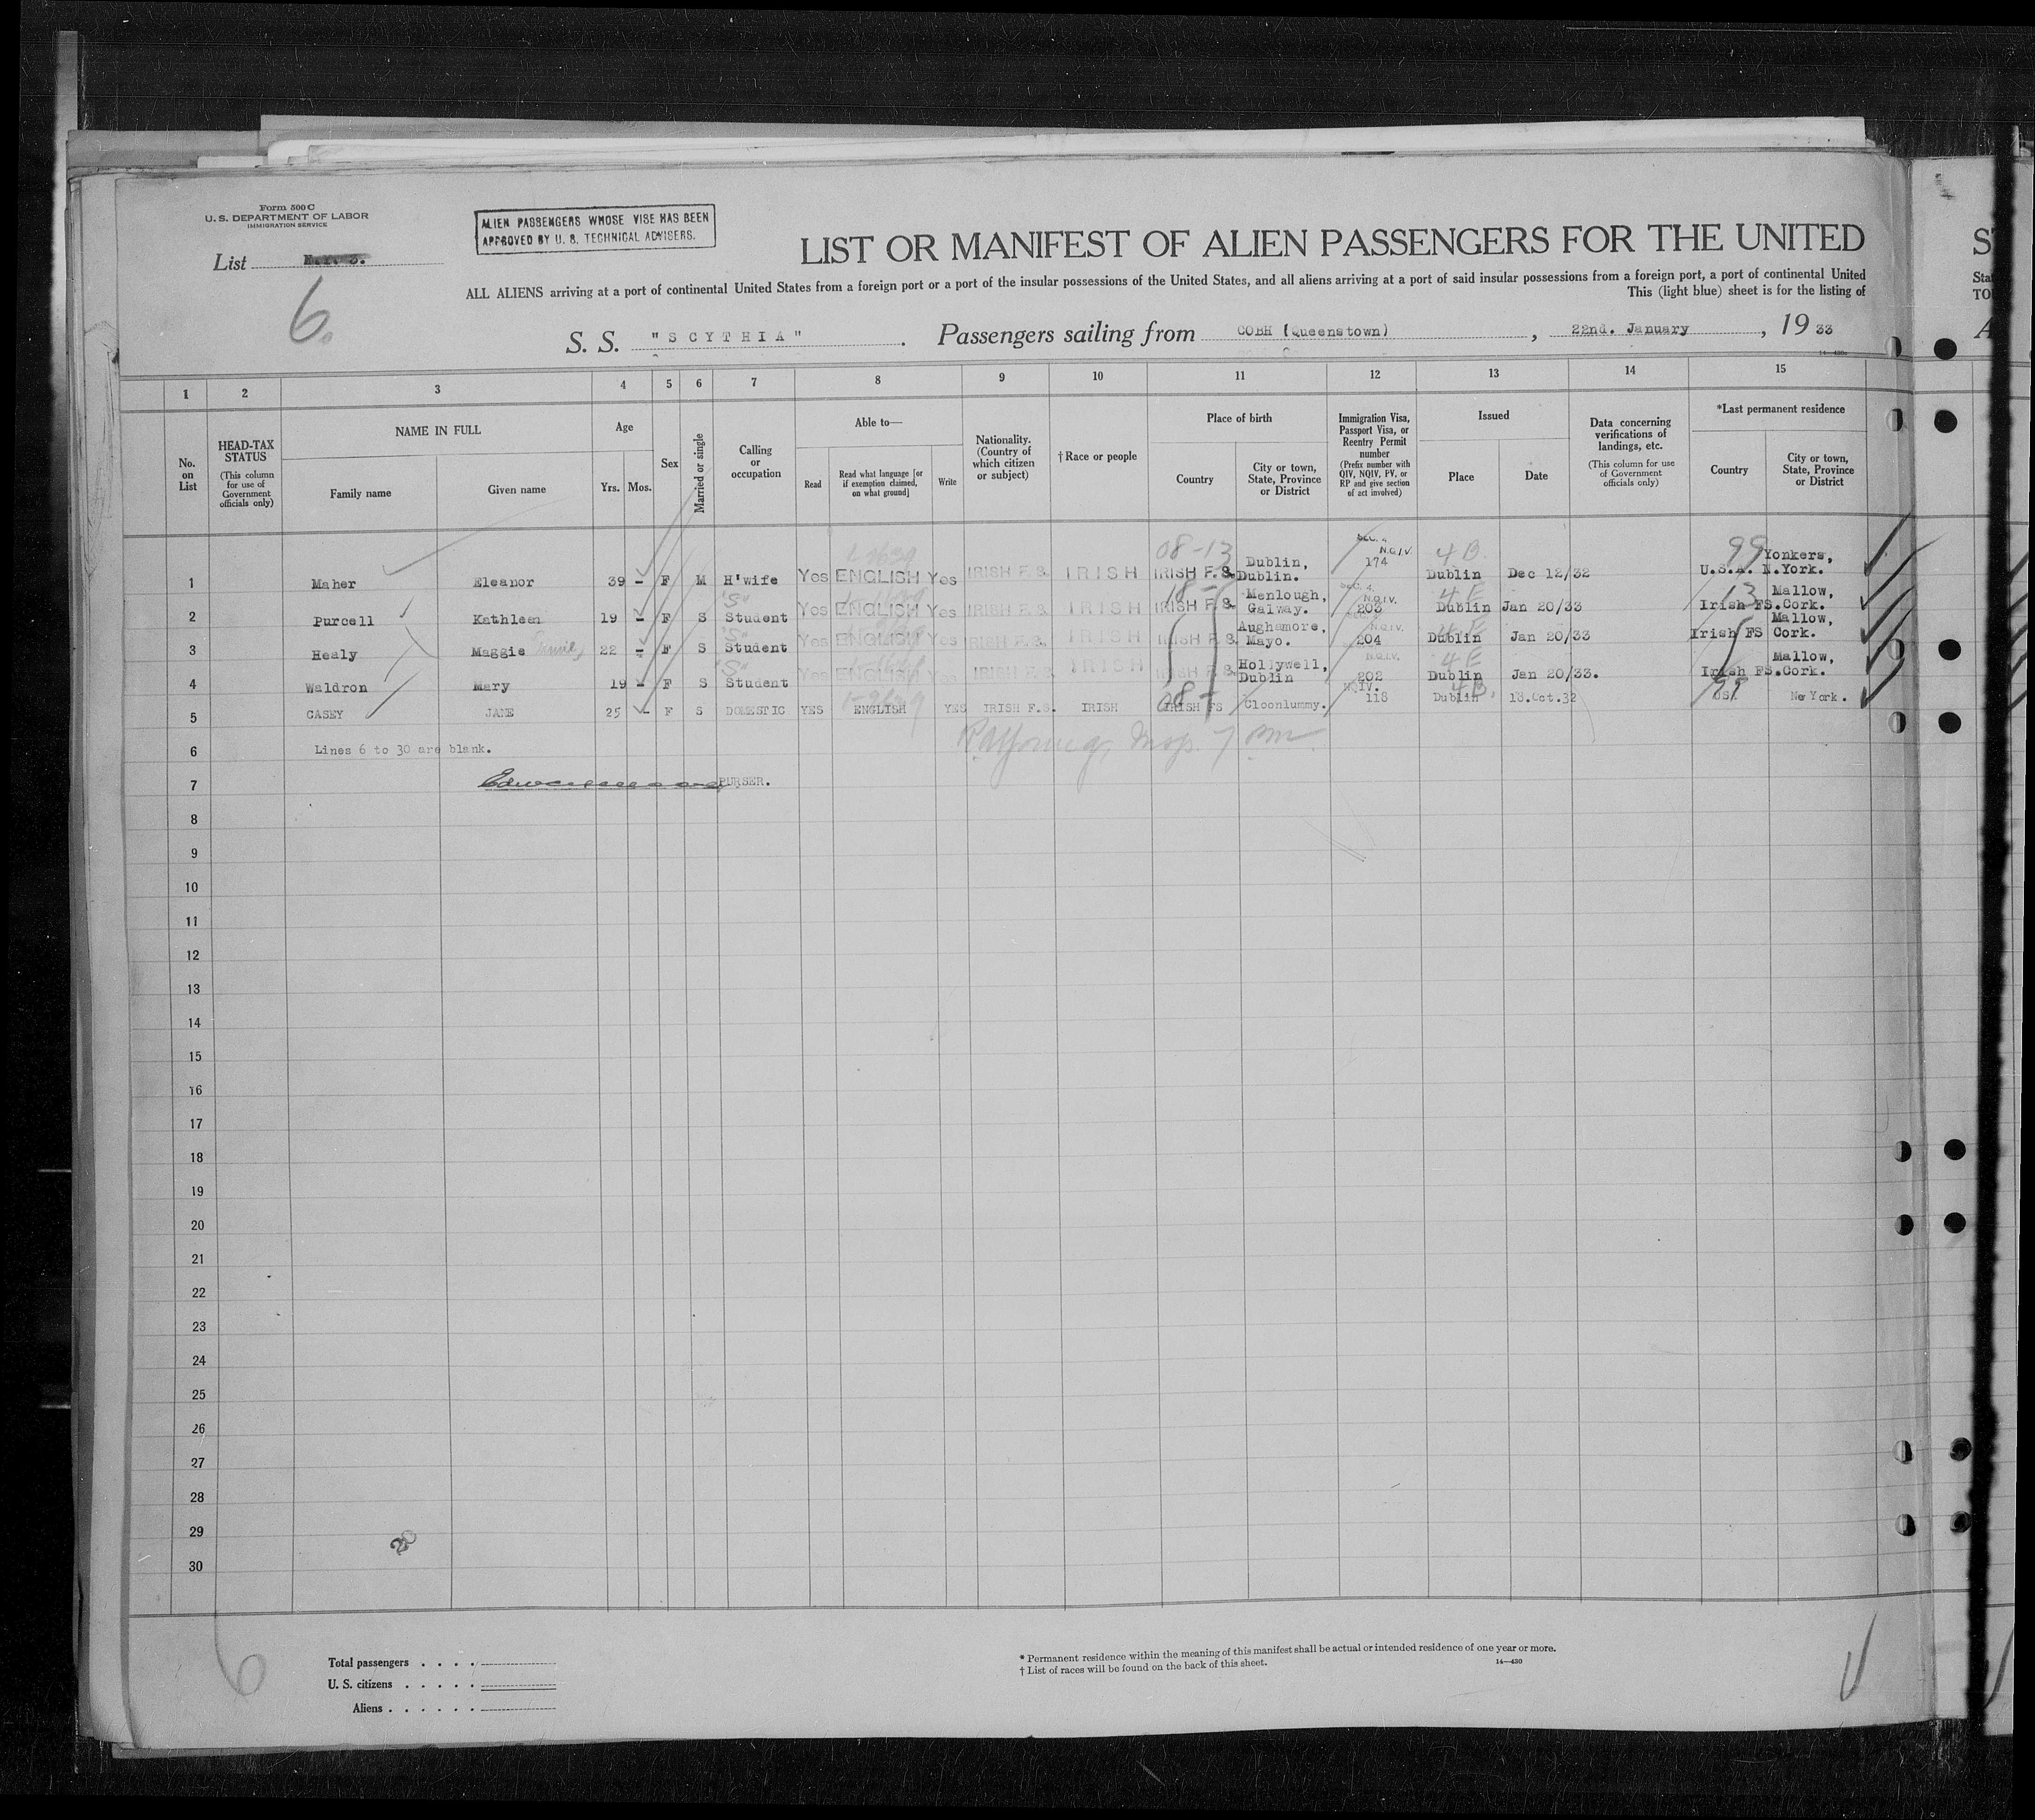 Form 500 C
U. S. DEPARTMENT OF LABOR
IMMIGRATION SERVICE
List
6
ALIEN PASSENGERS WHOSE VISE HAS BEEN
APPROVED BY U. S. TECHNICAL ADVISERS.
LIST OR MANIFEST OF ALIEN PASSENGERS FOR THE UNITED
ALL ALIENS arriving at a port of continental United States from a foreign port or a port of the insular possessions of the United States, and all aliens arriving at a port of said insular possessions from a foreign port, a port of continental United
This (light blue) sheet is for the listing of
S. S. "SCYTHIA". Passengers sailing from COBH (Queenstown), 22nd. January, 19 33
14—430
1 2 3 4 5 6 7 8 9 10 11 12 13 14 15
No. on List
HEAD-TAX STATUS (This column for use of Government officials only)
NAME IN FULL
Family name Given name
Age
Yrs. Mos.
Sex
Married or single
Calling or occupation
Able to—
Read Read what language [or if exemption claimed, on what ground] Write
Nationality. (Country of which citizen or subject)
† Race or people
Place of birth
Country City or town, State, Province or District
Immigration Visa, Passport Visa, or Reentry Permit number (Prefix number with QIV, NQIV, PV, or RP and give section of act involved)
Issued
Place Date
Data concerning verifications of landings, etc. (This column for use of Government officials only)
*Last permanent residence
Country City or town, State, Province or District
1 Maher Eleanor 39 - F M H'wife Yes ENGLISH Yes IRISH F.S. IRISH 08-13 IRISH F.S. Dublin, Dublin. SEC. 4 N.Q.I.V. 174 4 B. Dublin Dec 12/32 99 U.S.A. Yonkers, N.York.
2 Purcell Kathleen 19 - F S "S" Student Yes ENGLISH Yes IRISH F.S. IRISH 18- IRISH F.S. Menlough, Galway. SEC. 4 N.Q.I.V. 203 4 E Dublin Jan 20/33 13 Irish FS. Mallow, Cork.
3 Healy Maggie 22 - F S "S" Student Yes ENGLISH Yes IRISH F.S. IRISH IRISH F.S. Aughamore, Mayo. N.Q.I.V. 204 4 E Dublin Jan 20/33 Irish FS Mallow, Cork.
4 Waldron Mary 19 - F S "S" Student Yes ENGLISH Yes IRISH F.S. IRISH IRISH F.S. Hollywell, Dublin N.Q.I.V. 202 4 E Dublin Jan 20/33. Irish FS. Mallow, Cork.
5 CASEY JANE 25 - F S DOMESTIC YES ENGLISH YES IRISH F.S. IRISH 08- IRISH FS Cloonlummy. NQIV. 118 4 B. Dublin 18.Oct.32 99 USA New York.
6 Lines 6 to 30 are blank.
7 PURSER.
8
9
10
11
12
13
14
15
16
17
18
19
20
21
22
23
24
25
26
27
28
29
30
6
Total passengers
U. S. citizens
Aliens
* Permanent residence within the meaning of this manifest shall be actual or intended residence of one year or more.
† List of races will be found on the back of this sheet.
14—430